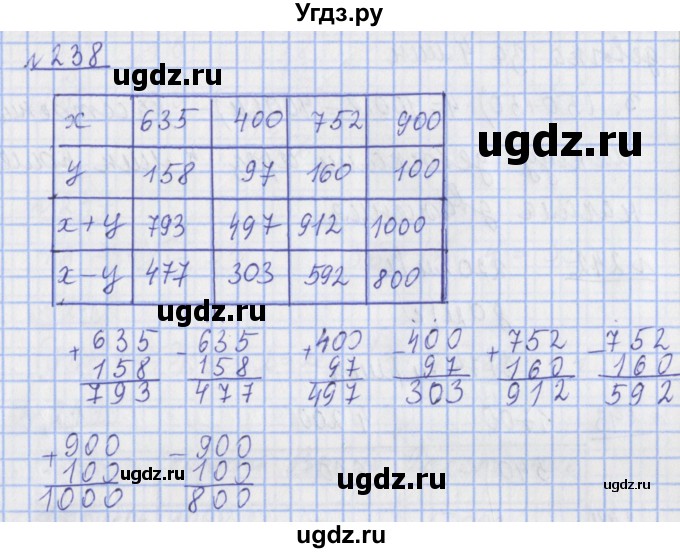 Угдз.ру
№238
ugdz.ru
x 635 400 752 900
y 158 97 160 100
x+y 793 497 912 1000
x-y 477 303 592 800
ugdz.ru
ugdz.ru
+635 -635 +400 -400 +752 -752
158 158 97 97 160 160
793 477 497 303 912 592
+900 -900
100 100
1000 800
ugdz.ru
ugdz.ru
ugdz.ru
ugdz.ru